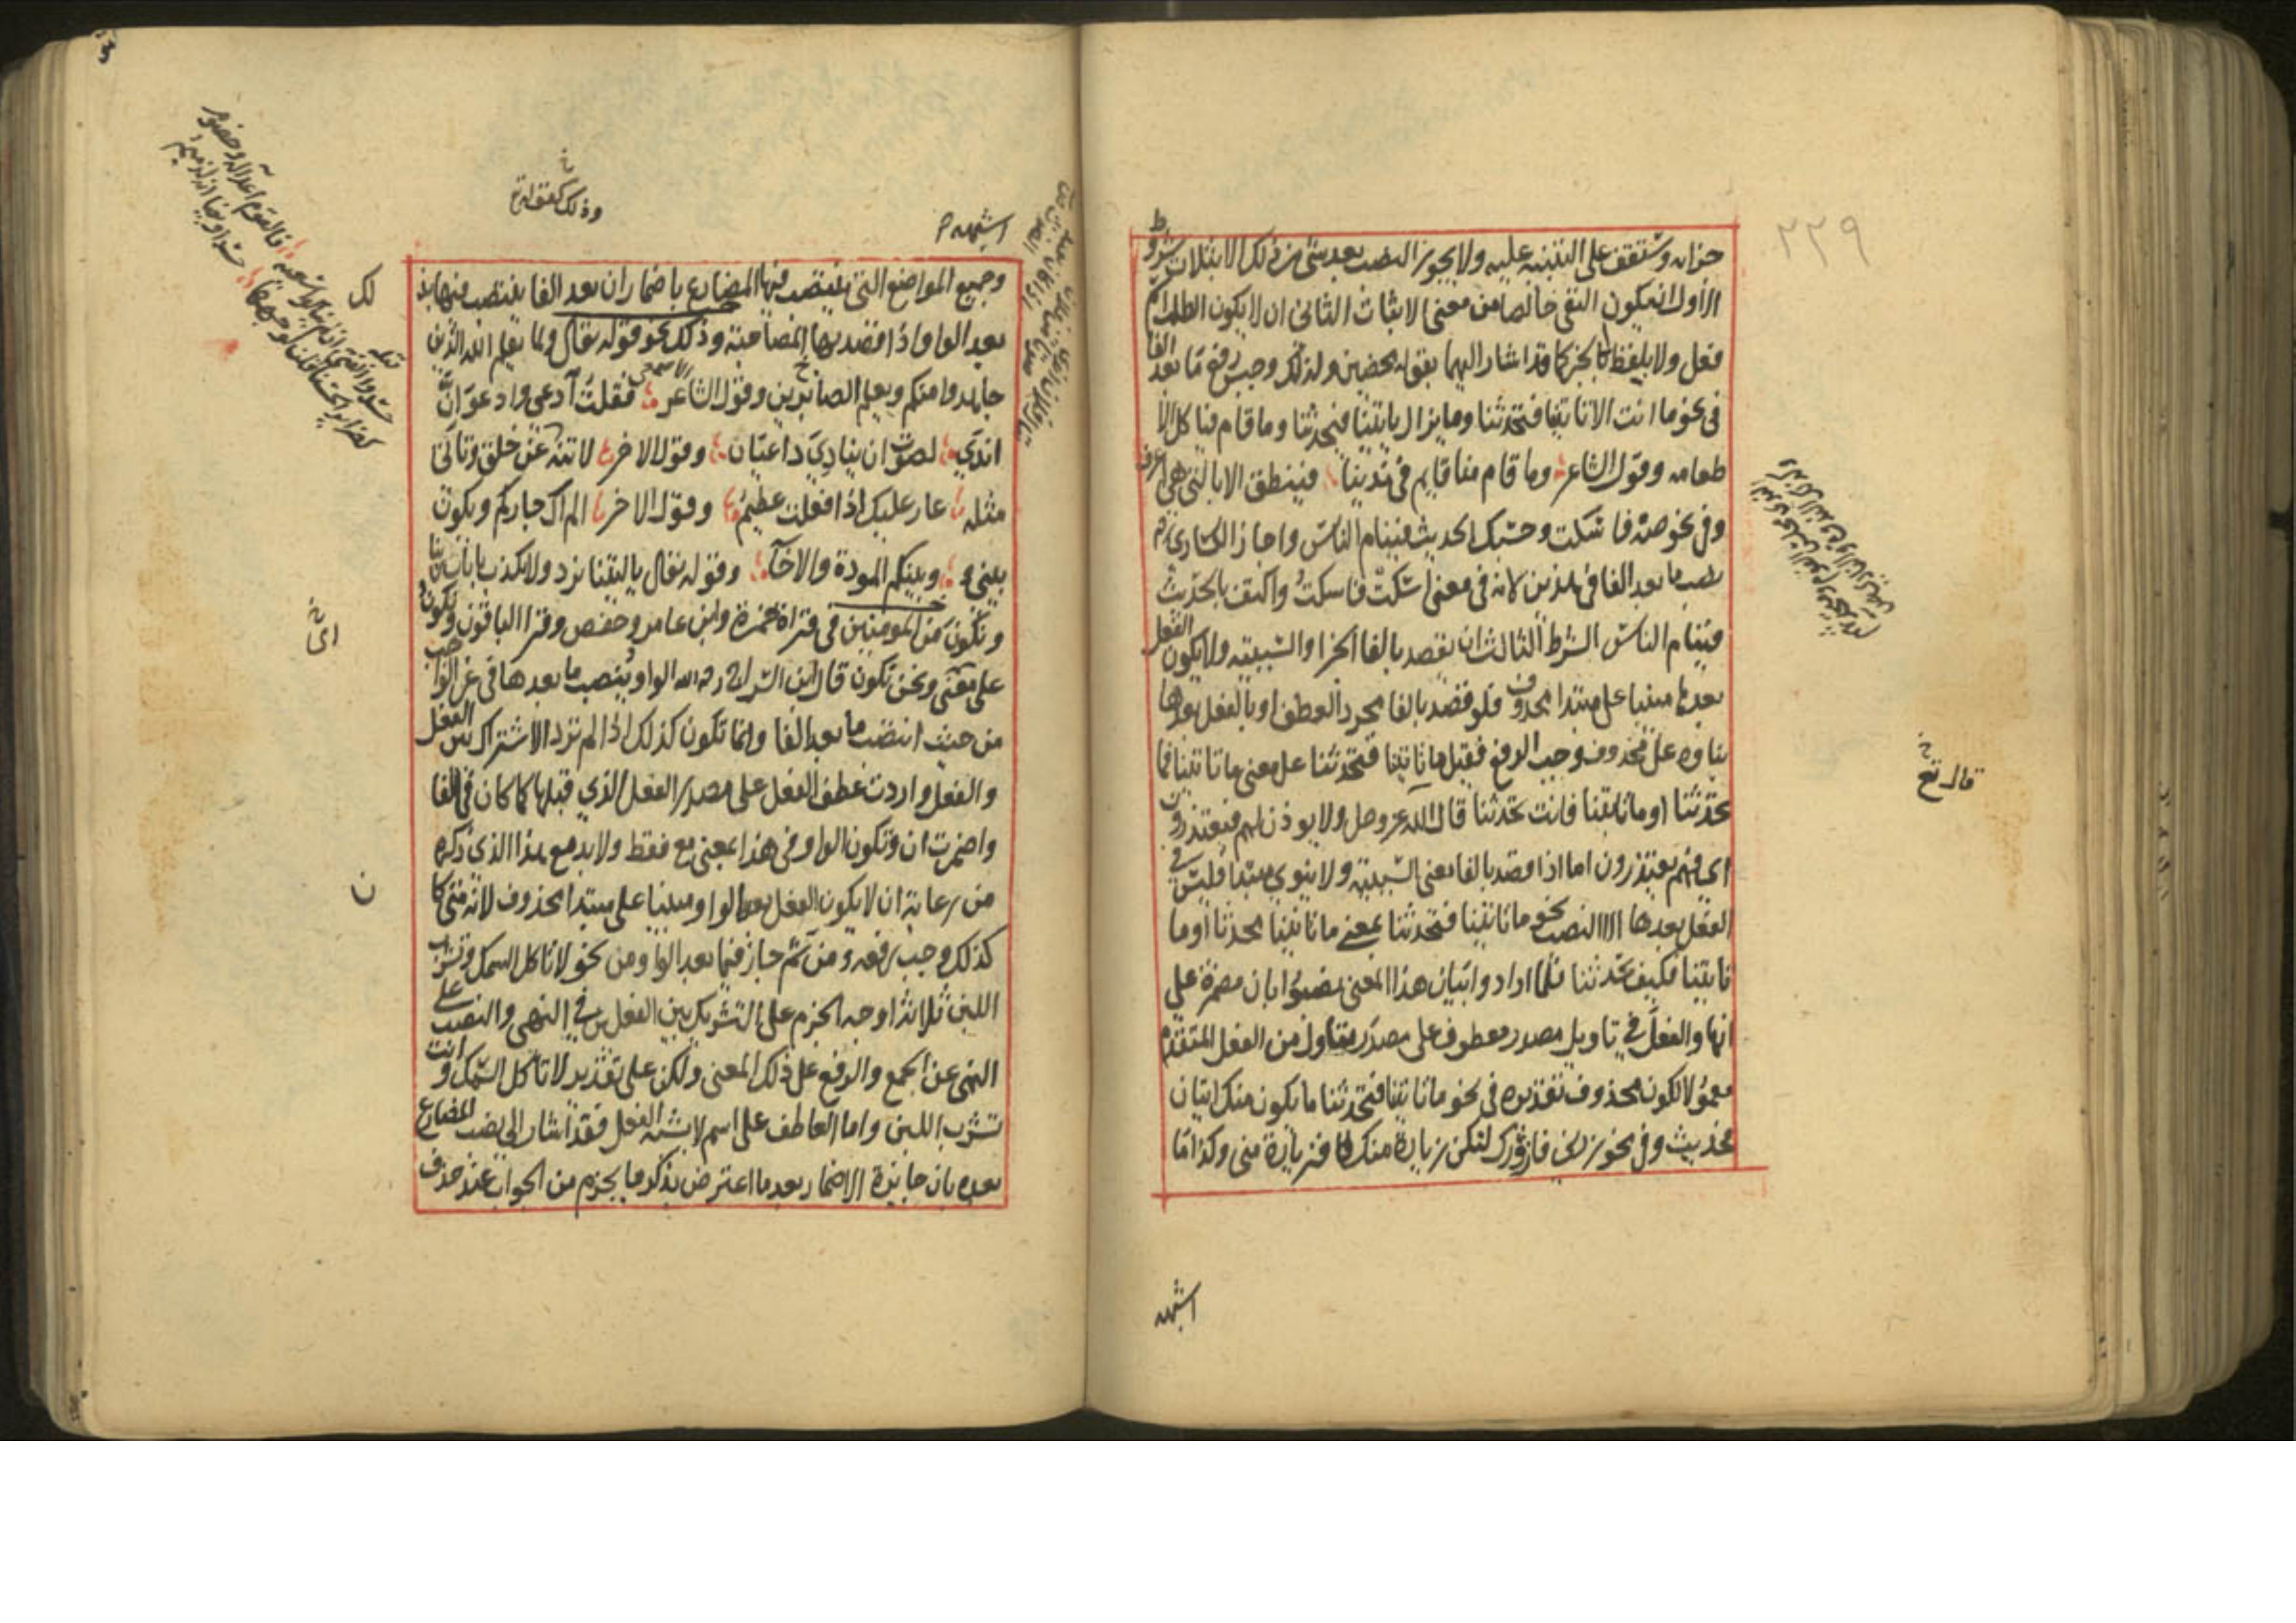 ٢٢٩
جزاء وستقف على التنبيه عليه ولا يجوز النصب بعد شئ من ذلك الا بثلاث شروط
الاول ان يكون النفى خالصا من معنى الاثبات الثانى ان لا يكون الطلب اسم
فعل ولا بلفظ الخبر كما قد اشار اليهما بقوله محضين ولذلك وجب رفع ما بعد الفا
فى نحو ما انت الا تاتينا فتحدثنا وما يزال ياتينا فيحدثنا وما قام فياكل الا
طعامه وقول الشاعر وما قام منا قايم فى ندينا فينطق الا بالتى هى اعرف
وفى نحو صه فاسكت وحسبك الحديث فينام الناس واجاز الكسائى
نصب ما بعد الفا فى هذين لانه فى معنى اسكت فاسكت واكتف بالحديث
فينام الناس الشرط الثالث ان يقصد بالفا الجزا والسببية ولا يكون الفعل
بعدها مبنيا على مبتدا محذوف فلو قصد بالفا مجرد العطف او بالفعل بعدها
بناوه على محذوف وجب الرفع فقيل ما تاتينا فتحدثنا على معنى ما تاتينا فما
تحدثنا او ما تاتينا فانت تحدثنا قال الله عز وجل ولا يوذن لهم فيعتذرون
اى فهم يعتذرون اما اذا قصد بالفا معنى السببية ولا ينوي مبتدا فليس فى
الفعل بعدها الا النصب نحو ما تاتينا فتحدثنا بمعنى ما تاتينا محدثا او ما
تاتينا فكيف تحدثنا فلما ارادوا بيان هذا المعنى نصبوا بان مضمرة على
انها والفعل فى تاويل مصدر معطوف على مصدر متاول من الفعل المتقدم
معمولا لكون محذوف تقديره فى نحو ما تاتينا فتحدثنا ما يكون منك اتيان
فحديث وفى نحو زرنى فازورك لتكن زيارة منك فزيارة منى وكذا ما
قال تع
اشبهه
اشبهه
وذلك كقوله تع
وجميع المواضع التى ينتصب فيها المضارع باضمار ان بعد الفا ينتصب فيها بذلك
بعد الواو اذا قصد بها المصاحبة وذلك نحو قوله تعالى ولما يعلم الله الذين
جاهدوا منكم ويعلم الصابرين وقول الشاعر فقلت ادعى وادعو ان
اندى لصوت ان ينادى داعيان وقول الاخر لا تنه عن خلق وتاتى
مثله عار عليك اذا فعلت عظيم وقول الاخر الم اك جاركم ويكون
بينى وبينكم المودة والاخآ وقوله تعالى يا ليتنا نرد ولا نكذب بايات ربنا
ونكون من المومنين فى قراة حمزة وابن عامر وحفص وقرا الباقون ونكون
على معنى ونحن نكون قال ابن السراج رحمه الله الواو ينصب ما بعدها فى غير الواجب
من حيث انتصب ما بعد الفا وانما تكون كذلك اذا لم ترد الاشتراك بين الفعل
والفعل واردت عطف الفعل على مصدر الفعل الذي قبلها كما كان فى الفا
واضمرت ان وتكون الواو فى هذا بمعنى مع فقط ولا بد مع هذا الذي ذكره
من رعاية ان لا يكون الفعل بعد الواو مبنيا على مبتدا محذوف لانه متى كان
كذلك وجب رفعه ومن ثم جاز فيما بعد الواو من نحو لا تاكل السمك وتشرب
اللبن ثلاثة اوجه الجزم على التشريك بين الفعلين فى النهى والنصب على
النهى عن الجمع والرفع على ذلك المعنى ولكن على تقدير لا تاكل السمك وانت
تشرب اللبن واما العاطف على اسم لا يشبه الفعل فقد اشار الى نصب المضارع
بعده بان جايزة الاضمار بعد ما اعترض بذكر ما يجزم من الجواب عند حذف